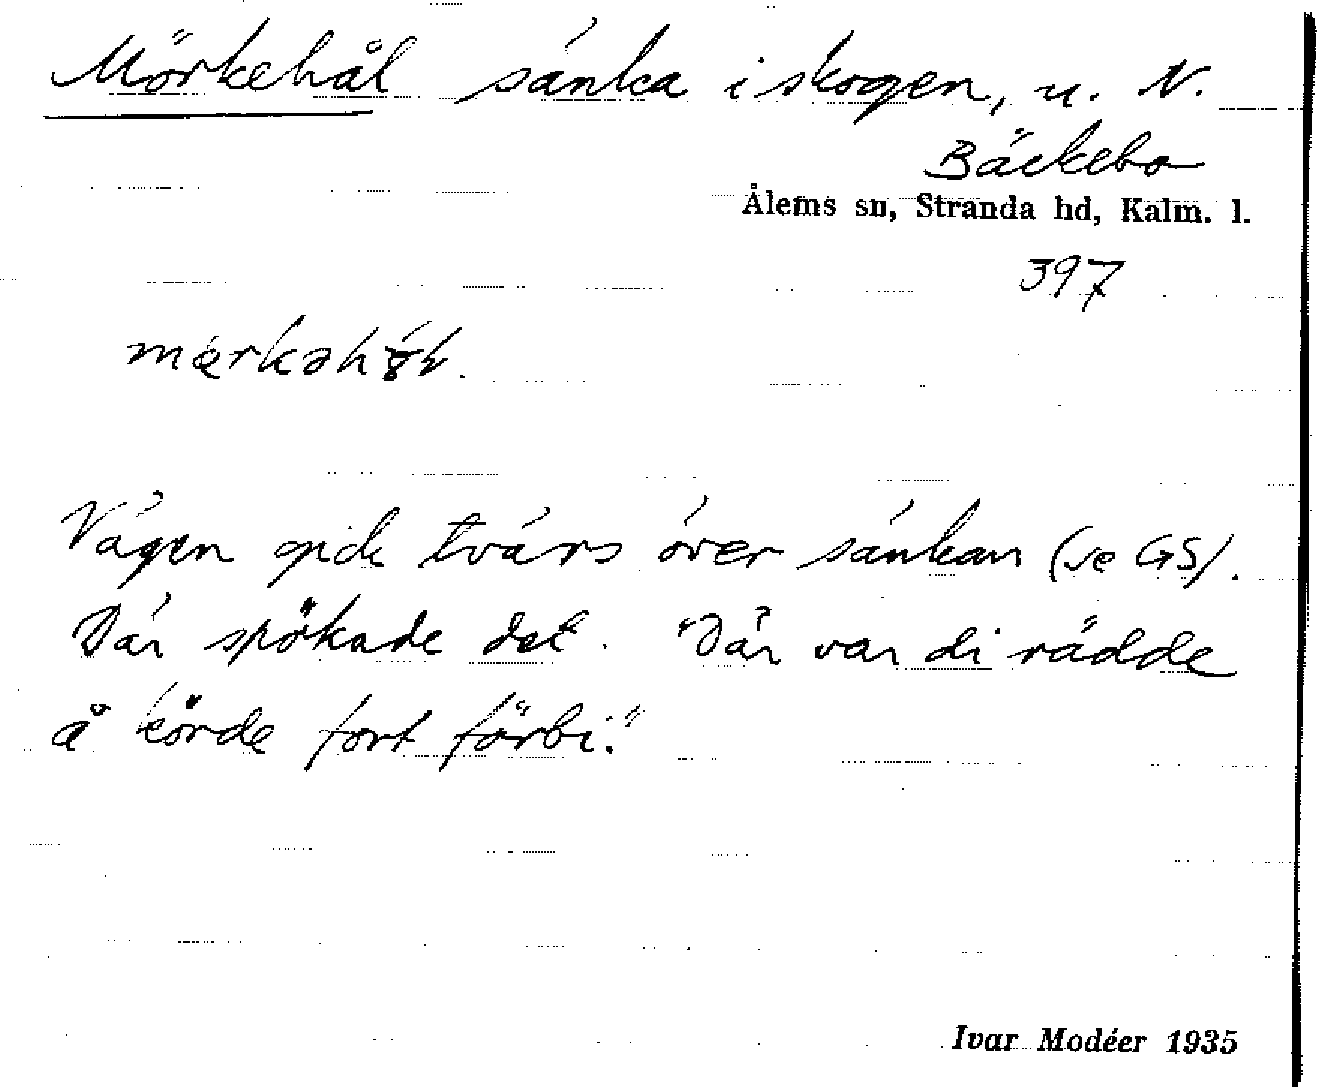 Mörkehål sänka i skogen, u. N.
Bäckebo
Ålems sn, Stranda hd, Kalm. l.
397
Vägen gick tvärs över sänkan (se GS).
Där spökade det. "Där var di rädde
å körde fort förbi."
Ivar Modéer 1935